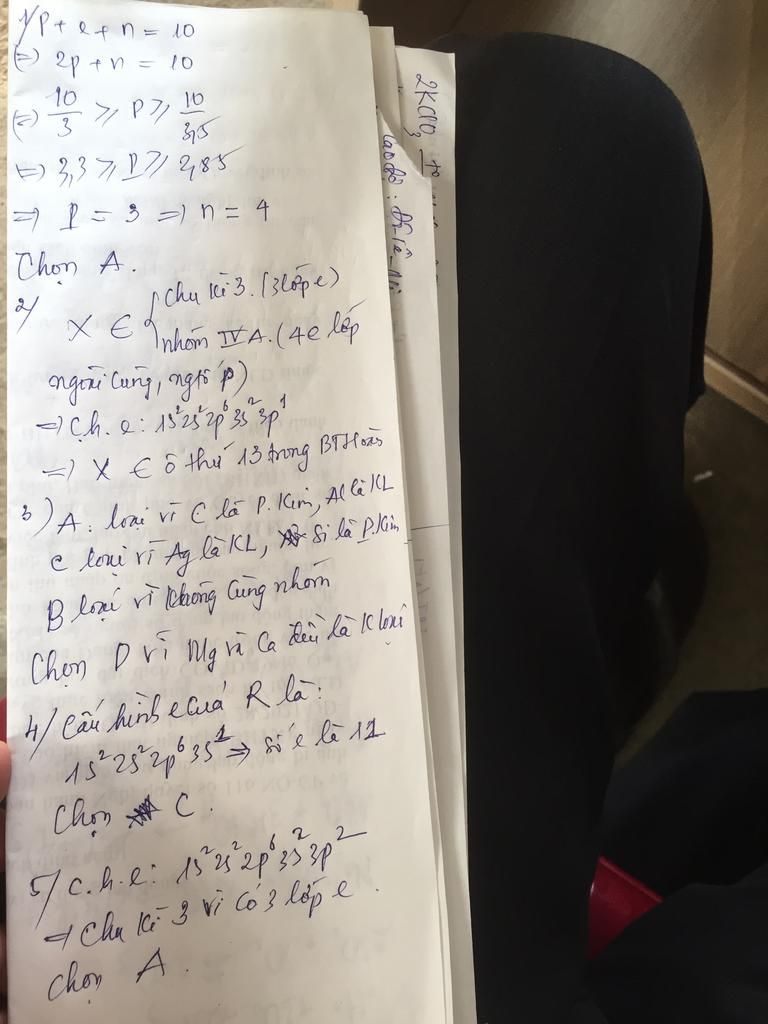 1/ p + e + n = 10
(=) 2p + n = 10
(=) 10/3 ⩾ P ⩾ 10/3,5
=) 3,3 ⩾ P ⩾ 2,85
=) P = 3 =) n = 4
Chọn A.
2/ X ∈ { Chu kì 3. (3 lớp e)
nhóm IVA. (4e lớp
ngoài cùng, ngtố p)
=) C.h.e: 1s²2s²2p⁶3s²3p¹
=) X ∈ ô thứ 13 trong BTHoàn
3) A. loại vì C là P. Kim, Al là KL
C loại vì Ag là KL, Si là P.Kim
B loại vì không cùng nhóm
Chọn D vì Mg và Ca đều là K loại
4/ Cấu hình e của R là:
1s²2s²2p⁶3s¹ => số e là 11
Chọn C.
5/ C.h.e: 1s²2s²2p⁶3s²3p²
=) Chu kì 3 vì có 3 lớp e.
Chọn A.
2KClO₃ t°